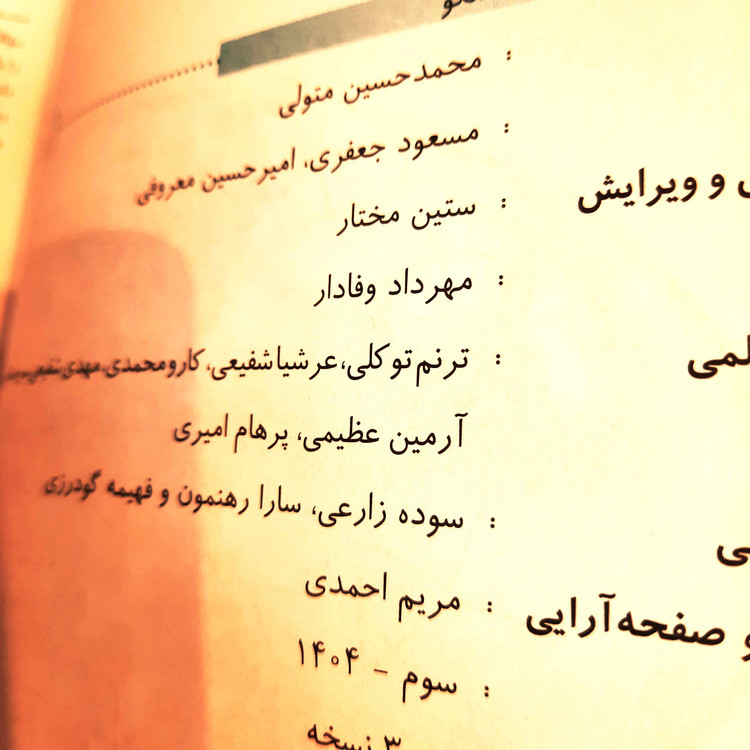 : محمدحسین متولی
: مسعود جعفری، امیرحسین معروفی
و ویرایش : ستین مختار
: مهرداد وفادار
: ترنم توکلی، عرشیا شفیعی، کارو محمدی، مهدی شفیعی
آرمین عظیمی، پرهام امیری
: سوده زارعی، سارا رهنمون و فهیمه گودرزی
و صفحه‌آرایی : مریم احمدی
: سوم - ۱۴۰۴
۳ نسخه